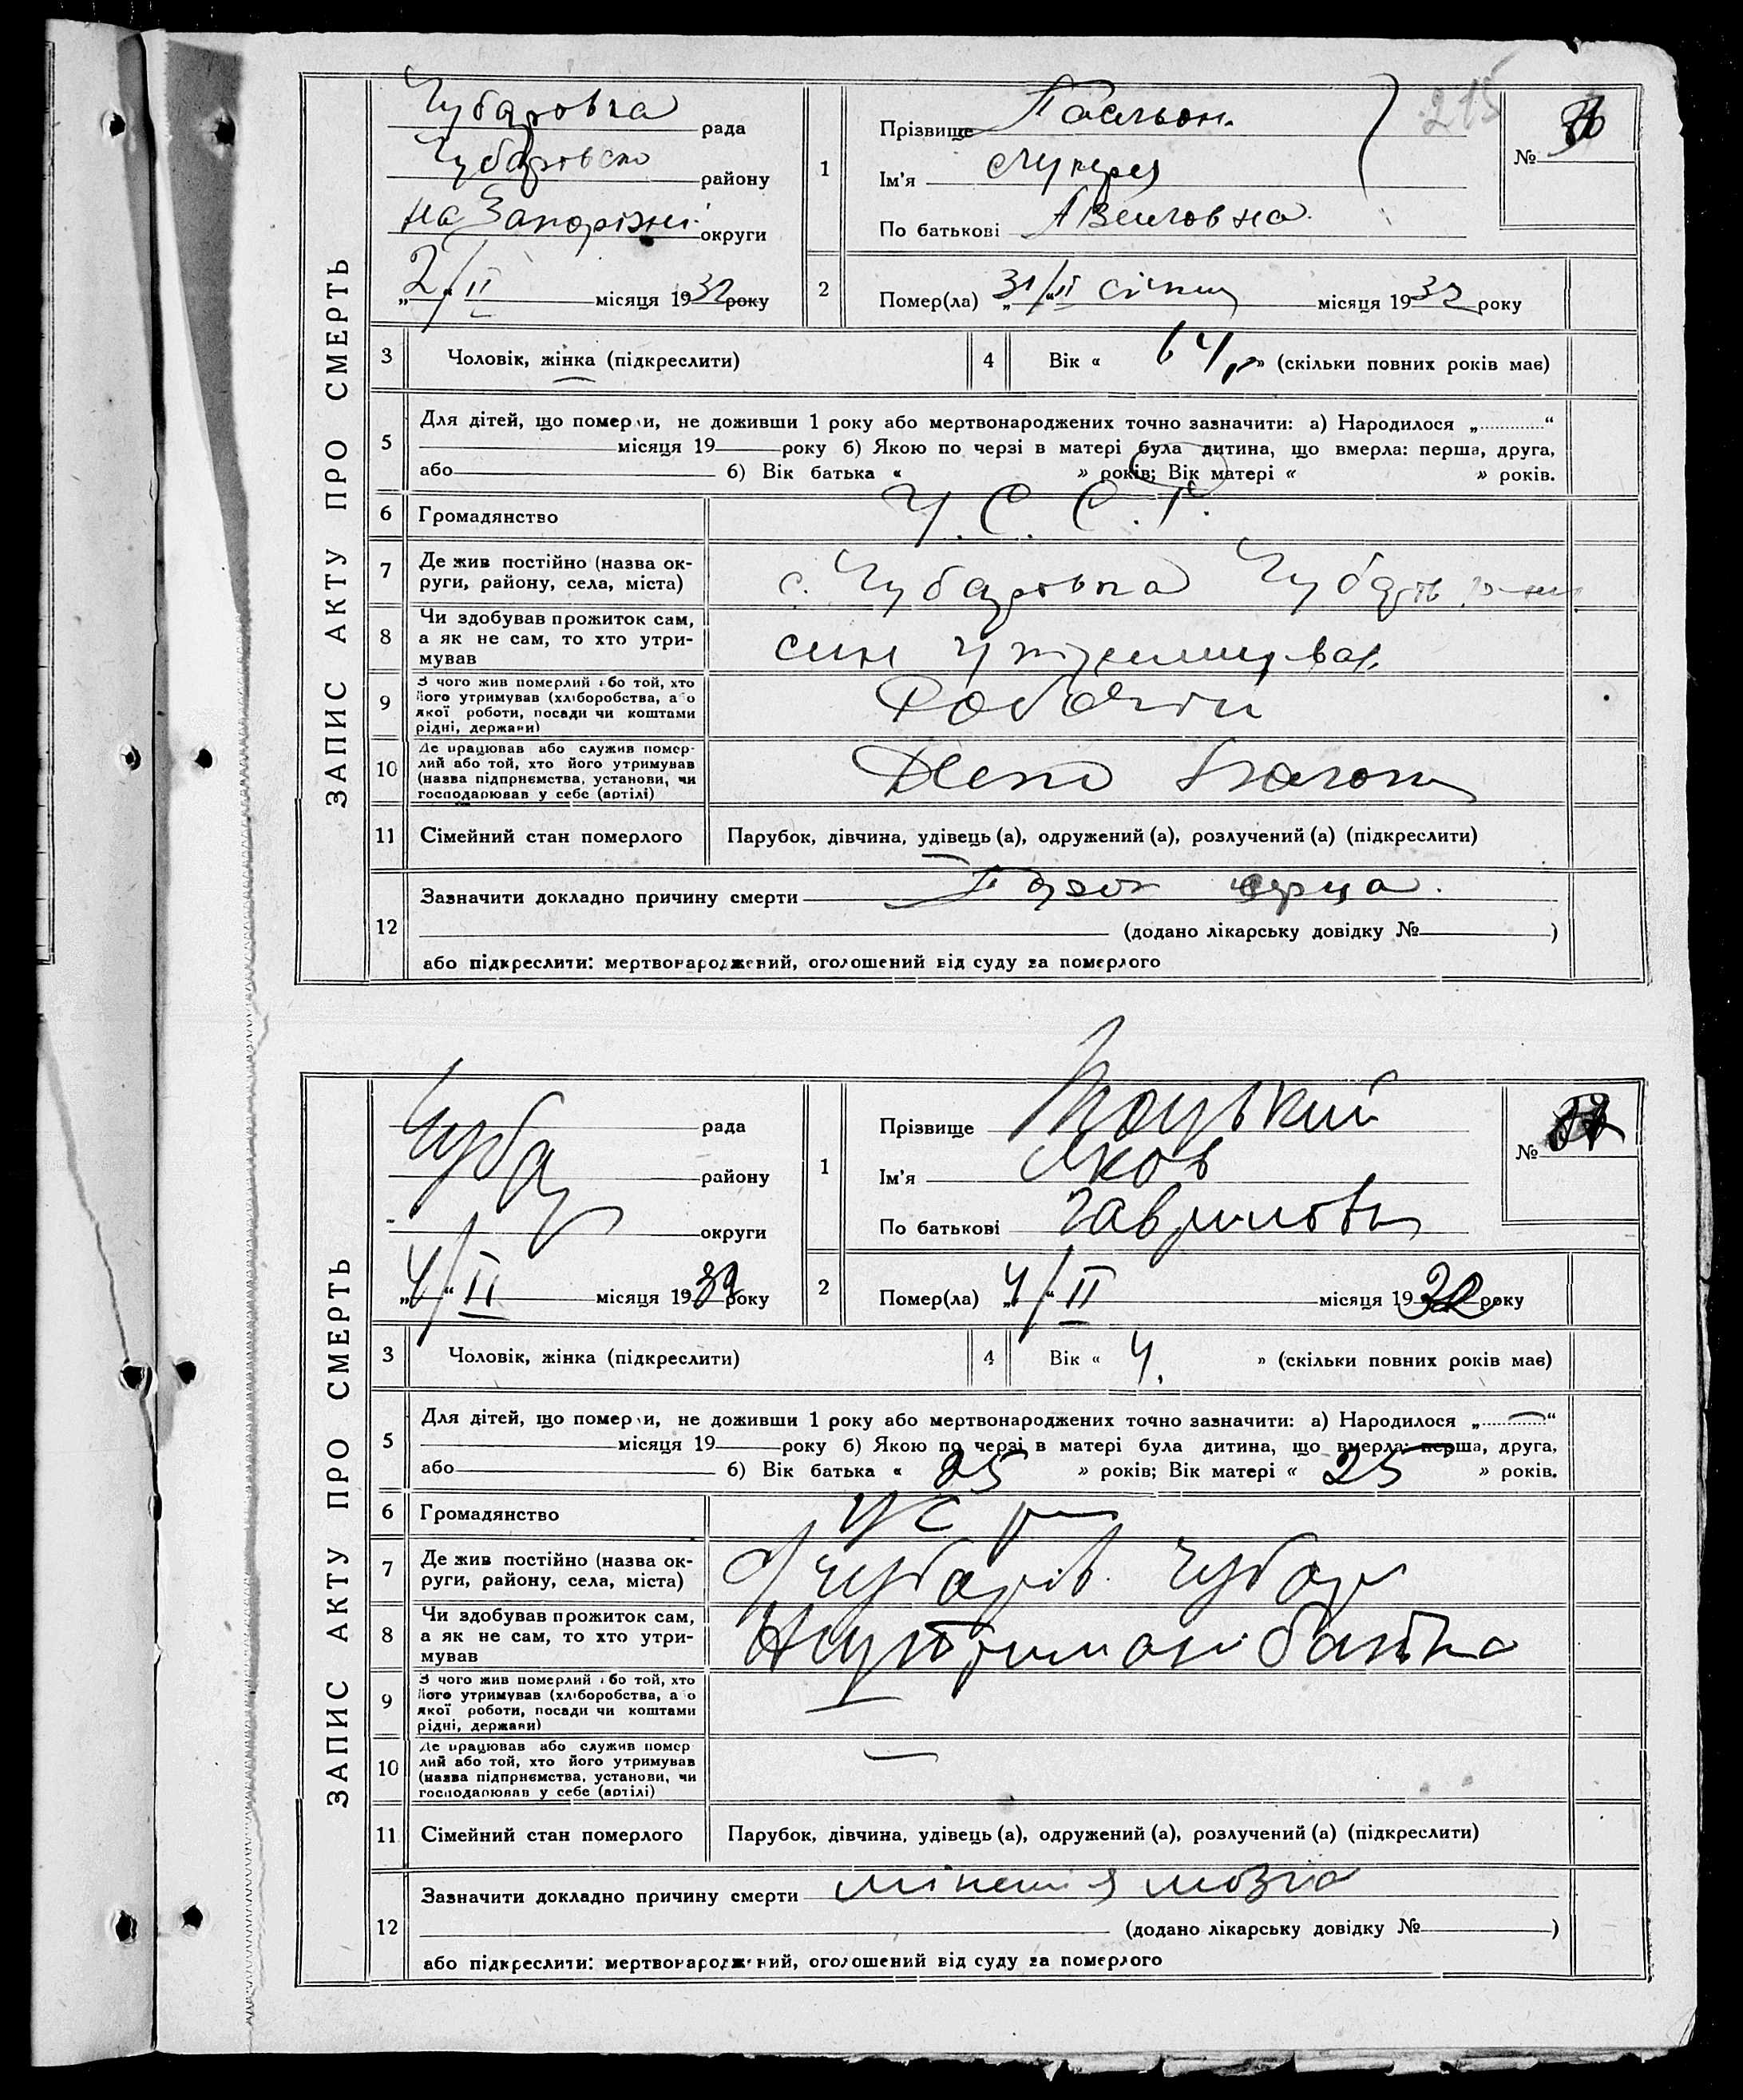 215
ЗАПИС АКТУ ПРО СМЕРТЬ
Чубаровка рада
Чубаровско району
на Запоріжжі округи
„2/“ II місяця 1932 року
1
Прізвище
Ім'я
По батькові
№
2
Помер(ла) „31/“ II січня місяця 1932 року
3 Чоловік, жінка (підкреслити)
4 Вік « 64 р» (скільки повних років має)
5 Для дітей, що померли, не доживши 1 року або мертвонароджених точно зазначити: а) Народилося „............“
місяця 19 року б) Якою по черзі в матері була дитина, що вмерла: перша, друга,
або б) Вік батька « » років; Вік матері « » років.
6 Громадянство У. С. С. Р.
7 Де жив постійно (назва округи, району, села, міста) с. Чубаровка Чубарів
8 Чи здобував прожиток сам, а як не сам, то хто утримував син утримував
9 З чого жив померлий або той, хто його утримував (хліборобства, або якої роботи, посади чи коштами рідні, держави) Робочий
10 Де працював або служив померлий або той, хто його утримував (назва підприємства, установи, чи господарював у себе (артілі) Депо
11 Сімейний стан померлого Парубок, дівчина, удівець (а), одружений (а), розлучений (а) (підкреслити)
12 Зазначити докладно причину смерти Порок серца.
(додано лікарську довідку № )
або підкреслити: мертвонароджений, оголошений від суду за померлого
ЗАПИС АКТУ ПРО СМЕРТЬ
Чубар
рада
району
округи
„4/“ II місяця 1932 року
1
Прізвище Троцький
Ім'я Яков
По батькові Гаврилович
№
2
Помер(ла) „4/“ II місяця 1932 року
3 Чоловік, жінка (підкреслити)
4 Вік « 4. » (скільки повних років має)
5 Для дітей, що померли, не доживши 1 року або мертвонароджених точно зазначити: а) Народилося „............“
місяця 19 року б) Якою по черзі в матері була дитина, що вмерла: перша, друга,
або б) Вік батька « 25 » років; Вік матері « 25 » років.
6 Громадянство УС
7 Де жив постійно (назва округи, району, села, міста) с/Чубарів. Чубар
8 Чи здобував прожиток сам, а як не сам, то хто утримував На утримані батька
9 З чого жив померлий або той, хто його утримував (хліборобства, або якої роботи, посади чи коштами рідні, держави) —
10 Де працював або служив померлий або той, хто його утримував (назва підприємства, установи, чи господарював у себе (артілі) —
11 Сімейний стан померлого Парубок, дівчина, удівець (а), одружений (а), розлучений (а) (підкреслити)
12 Зазначити докладно причину смерти мозга
(додано лікарську довідку № )
або підкреслити: мертвонароджений, оголошений від суду за померлого